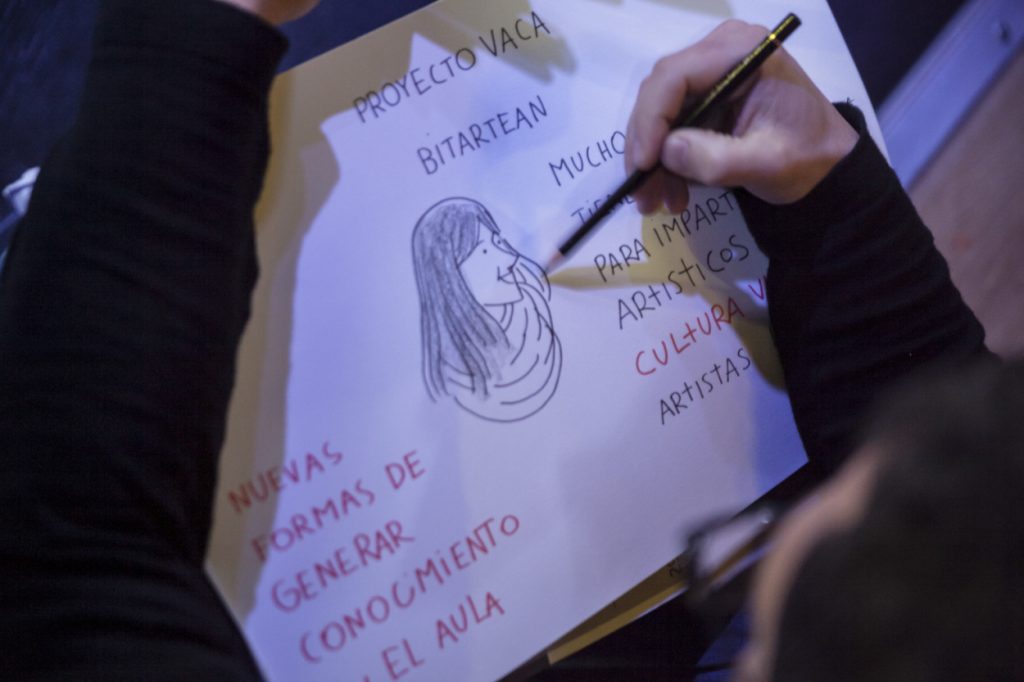 PROYECTO VACA
BITARTEAN
MUCHO
PARA IMPART
ARTISTICOS
CULTURA V
ARTISTAS
NUEVAS
FORMAS DE
GENERAR
CONOCIMIENTO
EL AULA